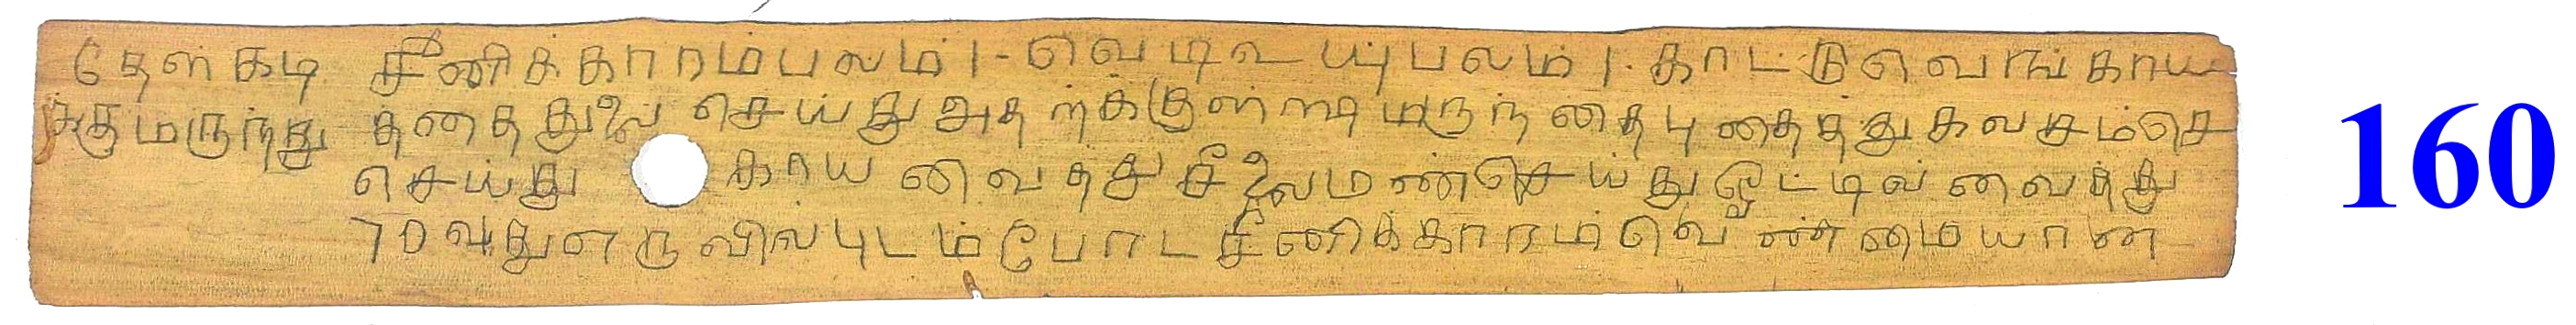 தேள்கடி சீனிக்காரம்பலம்1-வெடிவுப்புபலம்1.காட்டுவெங்காய
க்குமருந்து த்தைதுலைசெய்துஅதற்க்குள்ளிமருந்தைபுதைத்துகவசம்செ
செய்து காயவைத்துசீலைமண்செய்துஓட்டில்வைத்து
70வது எருவில்புடம்போடசீனிக்காரம்வெண்மையான
160